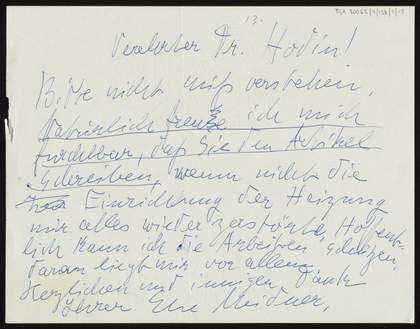 13.
Verehrter Dr. Hodin!
Bitte nicht miß verstehen,
Natürlich freue ich mich
furchtbar, daß Sie den Artikel
schreiben, wenn nicht die
Einrichtung der Heizung
mir alles wieder zerstörte, Hoffent-
lich kann ich die Arbeiten schützen,
daran liegt mir vor allem
Herzlichen und innigen Dank
Ihrer Else Meidner,